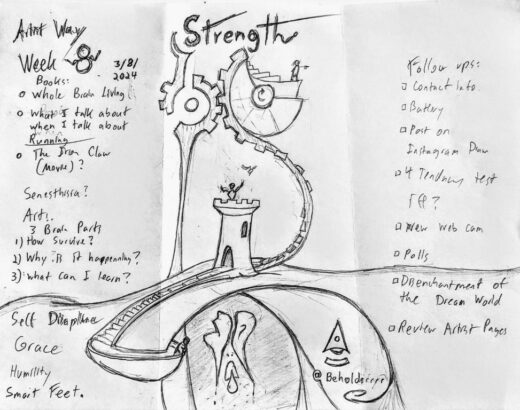 Strength
Artist Way
Week 8
3/8/
2024
Books:
o Whole Brain Living
o What I talk about
when I talk about
Running
o The Iron Claw
(Movie)?
Senesthisia?
Arts.
3 Brain Parts
1) How survive?
2) Why is it happening?
3) What can I learn?
Self Disapline
Grace
Humility
Smart Feet.
Follow ups:
Contact Info.
Battery
Post on
Instagram
4 Tendancy test
New Web Cam
Polls
Disenchantment of
the Dream World
Review Artist Pages